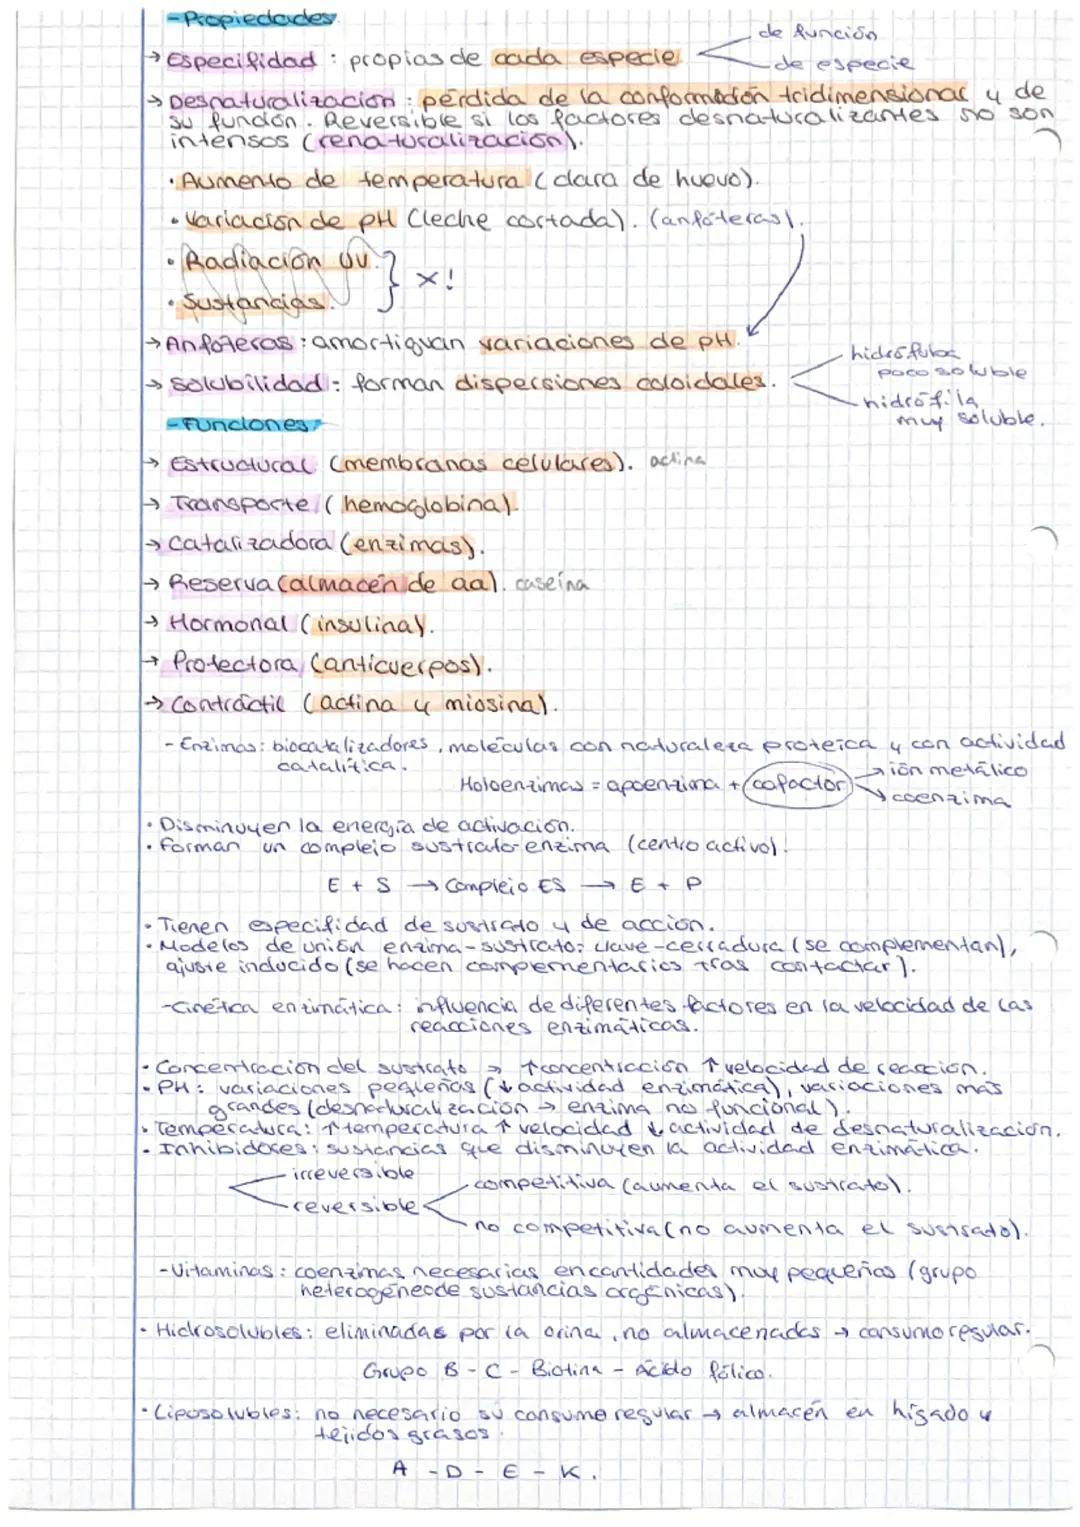 -Propiedades.
→ Especifidad : propias de cada especie
de función
de especie
→ Desnaturalización : pérdida de la conformación tridimensional y de
su función. Reversible si los factores desnaturalizantes no son
intensos (renaturalización).
· Aumento de temperatura (clara de huevo).
· Variación de pH (leche cortada). (anfóteras).
· Radiación UV.
· Sustancias.
} x!
→ Anfóteras : amortiguan variaciones de pH.
→ Solubilidad : forman dispersiones coloidales.
hidrófuba
poco soluble
hidrófila
muy soluble.
-Funciones:
→ Estructural (membranas celulares). actina
→ Transporte (hemoglobina).
→ Catalizadora (enzimas).
→ Reserva (almacén de aa). caseína
→ Hormonal (insulina).
→ Protectora (anticuerpos).
→ Contráctil (actina y miosina).
- Enzimas: biocatalizadores, moléculas con naturaleza proteica y con actividad
catalítica.
Holoenzimas = apoenzima + cofactor
→ ión metálico
→ coenzima
· Disminuyen la energía de activación.
· Forman un complejo sustrato-enzima (centro activo).
E + S → Complejo ES → E + P
· Tienen especifidad de sustrato y de acción.
· Modelos de unión enzima-sustrato: llave-cerradura (se complementan),
ajuste inducido (se hacen complementarios tras contactar).
-Cinética enzimática: influencia de diferentes factores en la velocidad de las
reacciones enzimáticas.
· Concentración del sustrato → ↑concentración ↑velocidad de reacción.
· PH: variaciones pequeñas (↓actividad enzimática), variaciones más
grandes (desnaturalización → enzima no funcional).
· Temperatura: ↑temperatura ↑ velocidad ↓ actividad de desnaturalización.
· Inhibidores: sustancias que disminuyen la actividad enzimática.
irreversible
reversible
competitiva (aumenta el sustrato).
no competitiva (no aumenta el sustrato).
-Vitaminas: coenzimas necesarias en cantidades muy pequeñas (grupo
heterogéneo de sustancias orgánicas).
· Hidrosolubles: eliminadas por la orina, no almacenadas → consumo regular.
Grupo B - C - Biotina - Ácido fólico.
· Liposolubles: no necesario su consumo regular → almacén en hígado y
tejidos grasos.
A - D - E - K.